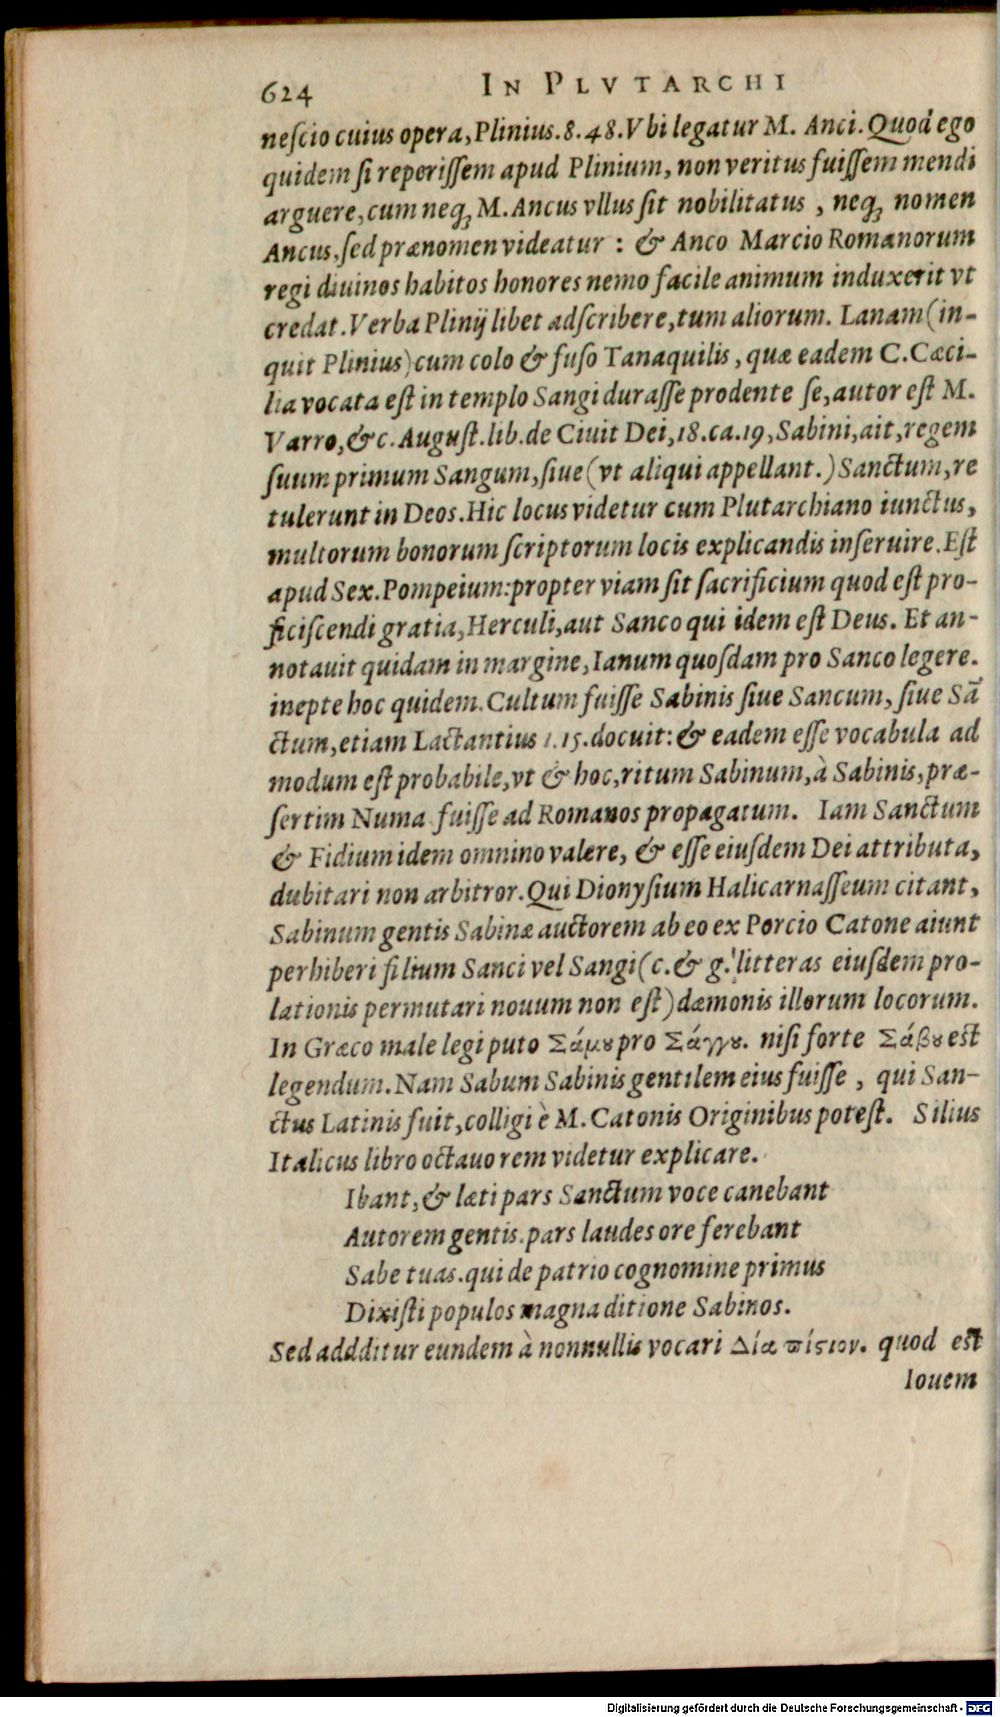 624 IN PLVTARCHI
neſcio cuius opera, Plinius. 8. 48. Vbi legatur M. Anci. Quod ego
quidem ſi reperiſſem apud Plinium, non veritus fuiſſem mendi
arguere, cum neq; M. Ancus vllus ſit nobilitatus, neq; nomen
Ancus, ſed prænomen videatur: & Anco Marcio Romanorum
regi diuinos habitos honores nemo facile animum induxerit vt
credat. Verba Plinij libet adſcribere, tum aliorum. Lanam (in-
quit Plinius) cum colo & fuſo Tanaquilis, quæ eadem C. Cæci-
lia vocata eſt in templo Sangi duraſſe prodente ſe, autor eſt M.
Varro, &c. Auguſt. lib. de Ciuit Dei, 18. ca. 19, Sabini, ait, regem
ſuum primum Sangum, ſiue (vt aliqui appellant.) Sanctum, re
tulerunt in Deos. Hic locus videtur cum Plutarchiano iunctus,
multorum bonorum ſcriptorum locis explicandis inſeruire. Eſt
apud Sex. Pompeium: propter viam fit ſacrificium quod eſt pro-
ficiſcendi gratia, Herculi, aut Sanco qui idem eſt Deus. Et an-
notauit quidam in margine, Ianum quoſdam pro Sanco legere.
inepte hoc quidem. Cultum fuiſſe Sabinis ſiue Sancum, ſiue Sā
ctum, etiam Lactantius 1. 15. docuit: & eadem eſſe vocabula ad
modum eſt probabile, vt & hoc, ritum Sabinum, à Sabinis, præ-
ſertim Numa fuiſſe ad Romanos propagatum. Iam Sanctum
& Fidium idem omnino valere, & eſſe eiuſdem Dei attributa,
dubitari non arbitror. Qui Dionyſium Halicarnaſſeum citant,
Sabinum gentis Sabinæ auctorem ab eo ex Porcio Catone aiunt
perhiberi filium Sanci vel Sangi (c. & g. litteras eiuſdem pro-
lationis permutari nouum non eſt) dæmonis illorum locorum.
In Græco male legi puto Σάμȣ pro Σάγγȣ. niſi forte Σάβȣ eſt
legendum. Nam Sabum Sabinis gentilem eius fuiſſe, qui San-
ctus Latinis fuit, colligi è M. Catonis Originibus poteſt. Silius
Italicus libro octauo rem videtur explicare.
Ibant, & læti pars Sanctum voce canebant
Autorem gentis. pars laudes ore ferebant
Sabe tuas. qui de patrio cognomine primus
Dixiſti populos magna ditione Sabinos.
Sed addditur eundem à nonnullis vocari Δία ϖίϛιον. quod eſt
Iouem
Digitalisierung gefördert durch die Deutsche Forschungsgemeinschaft - DFG